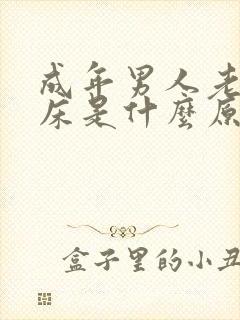 成年男人老
床是什麼原
盒子里的小丑